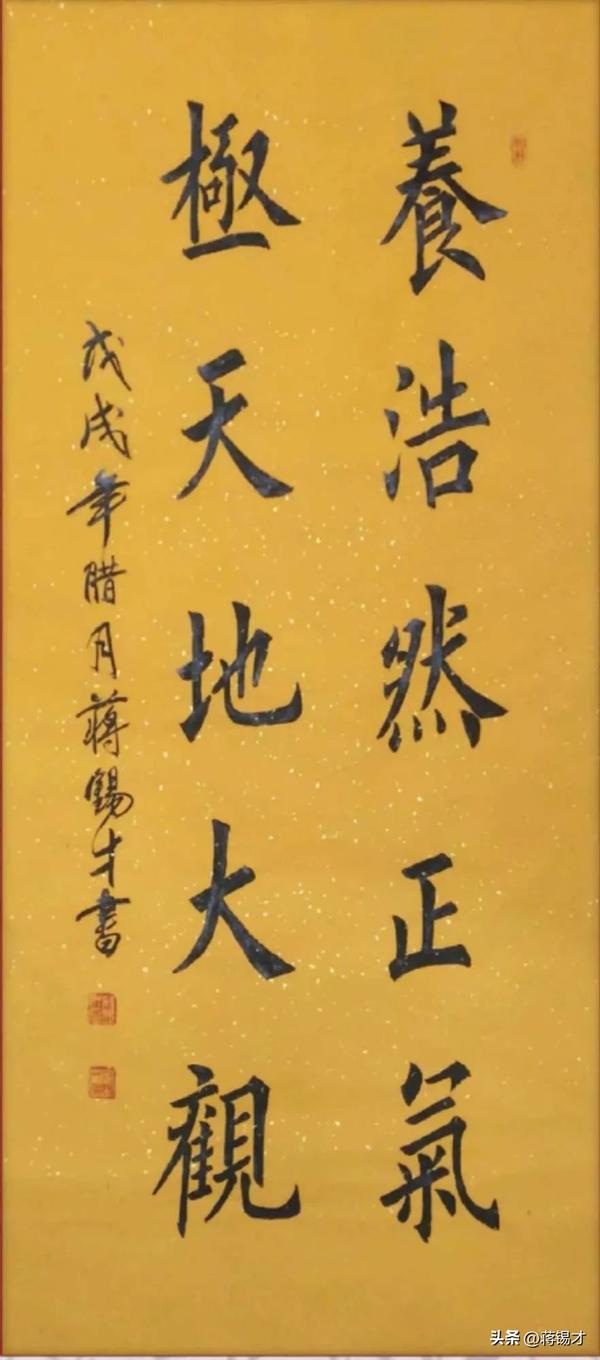 養浩然正氣
極天地大觀
戊戌年腊月蔣錫才書
头条 @蒋锡才